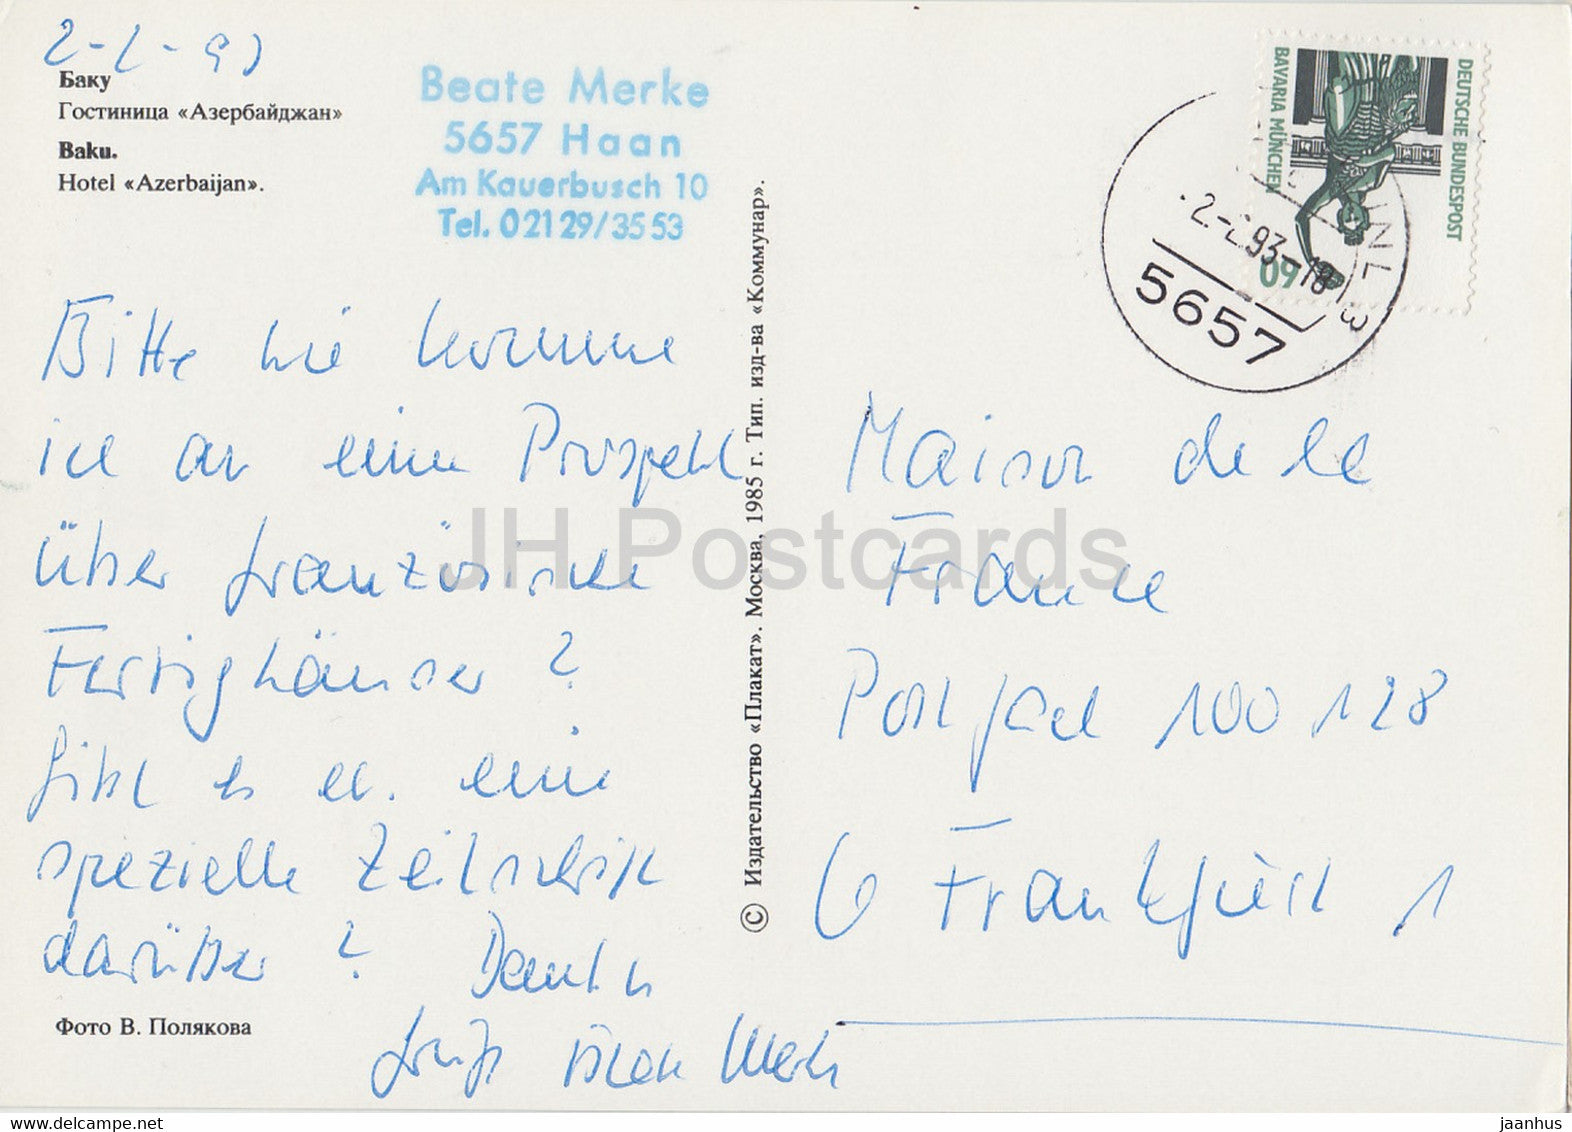 2-2-93
Баку
Гостиница «Азербайджан»
Baku.
Hotel «Azerbaijan».
Beate Merke
5657 Haan
Am Kauerbusch 10
Tel. 02129/3553
Bitte wie komme
ich an eine Prospekt
über französische
Fertighäuser ?
Gibt es ev. eine
spezielle Zeitschrift
darüber ? Dank
Merke
Фото В. Полякова
© Издательство «Плакат». Москва, 1985 г. Тип. изд-ва «Коммунар».
DEUTSCHE BUNDESPOST
BAVARIA MÜNCHEN
60
2.-2.93-18
5657
Maison de la
France
Postfach 100 128
6 Frankfurt 1
JH Postcards
www.delcampe.net
jaanhus